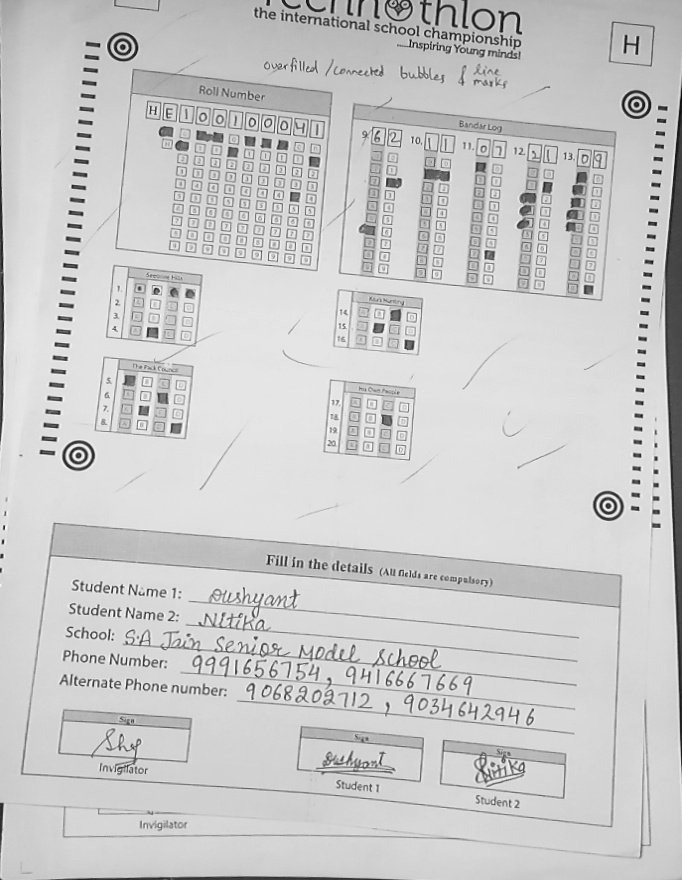 the international school championship
.....Inspiring Young minds!
H
overfilled / connected bubbles & line marks
Roll Number
HE100100041
Bandar Log
9. 62 10. 11 11. 07 12. 21 13. 09
Seeonee Hills
1.
2.
3.
4.
Kaa's Hunting
14.
15.
16.
The Pack Council
5.
6.
7.
8.
His Own People
17.
18.
19.
20.
Fill in the details (All fields are compulsory)
Student Name 1: Dushyant
Student Name 2: Nitika
School: S.A Jain Senior Model School
Phone Number: 9991656754, 9416667669
Alternate Phone number: 9068202712, 9034642946
Sign
Invigilator
Sign
Dushyant
Student 1
Sign
Nitika
Student 2
Invigilator